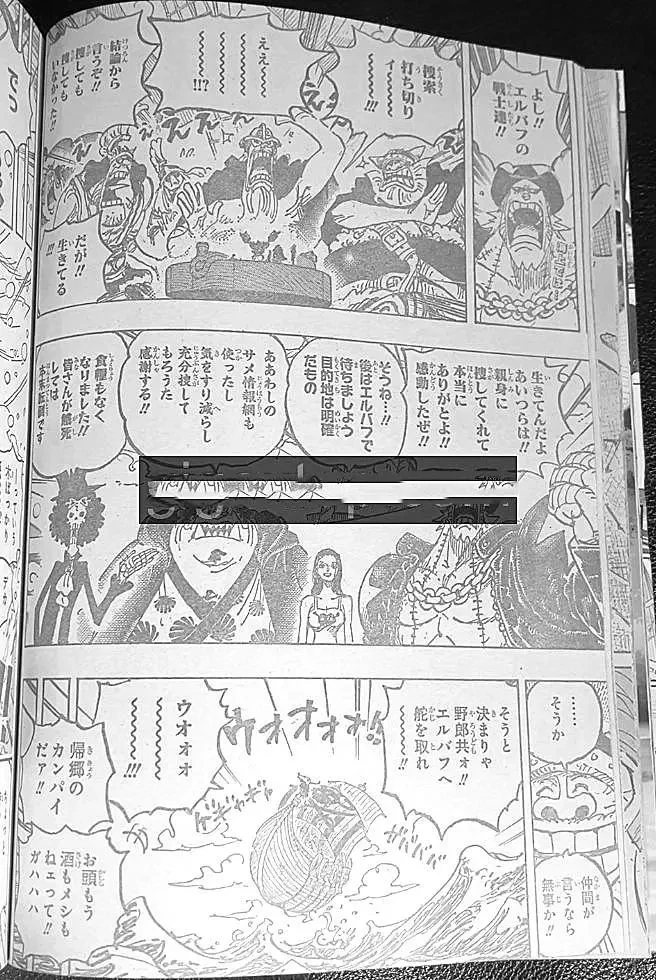 よし!!
エルバフの
戦士達!!
捜索
打ち切り
イ〜〜〜!!!
ええ〜〜〜
〜〜〜〜
〜〜〜!!?
結論から
言うぞ!!
捜しても
捜しても
いなかった!!
だが!!
生きてる
!!!
生きてんだよ
あいつらは!!
親身に
捜してくれて
本当に
ありがとよ!!
感動したぜ!!
そうね…!!
後はエルバフで
待ちましょう
目的地は明確
だもの
ああわしの
サメ情報網も
使ったし
気をすり減らし
充分捜して
もろうた
感謝する!!
食糧もなく
なりました!!
皆さんが餓死
しては
本末転倒です
……
そうか
仲間が
言うなら
無事か!!
そうと
決まりゃ
野郎共ォ!!
エルバフへ
舵を取れ
ウオオォ
〜〜〜〜
〜〜〜!!!
ギャギャギャ
帰郷の
カンパイ
だァ!!
お頭もう
酒もメシも
ねェって!!
ガハハハ